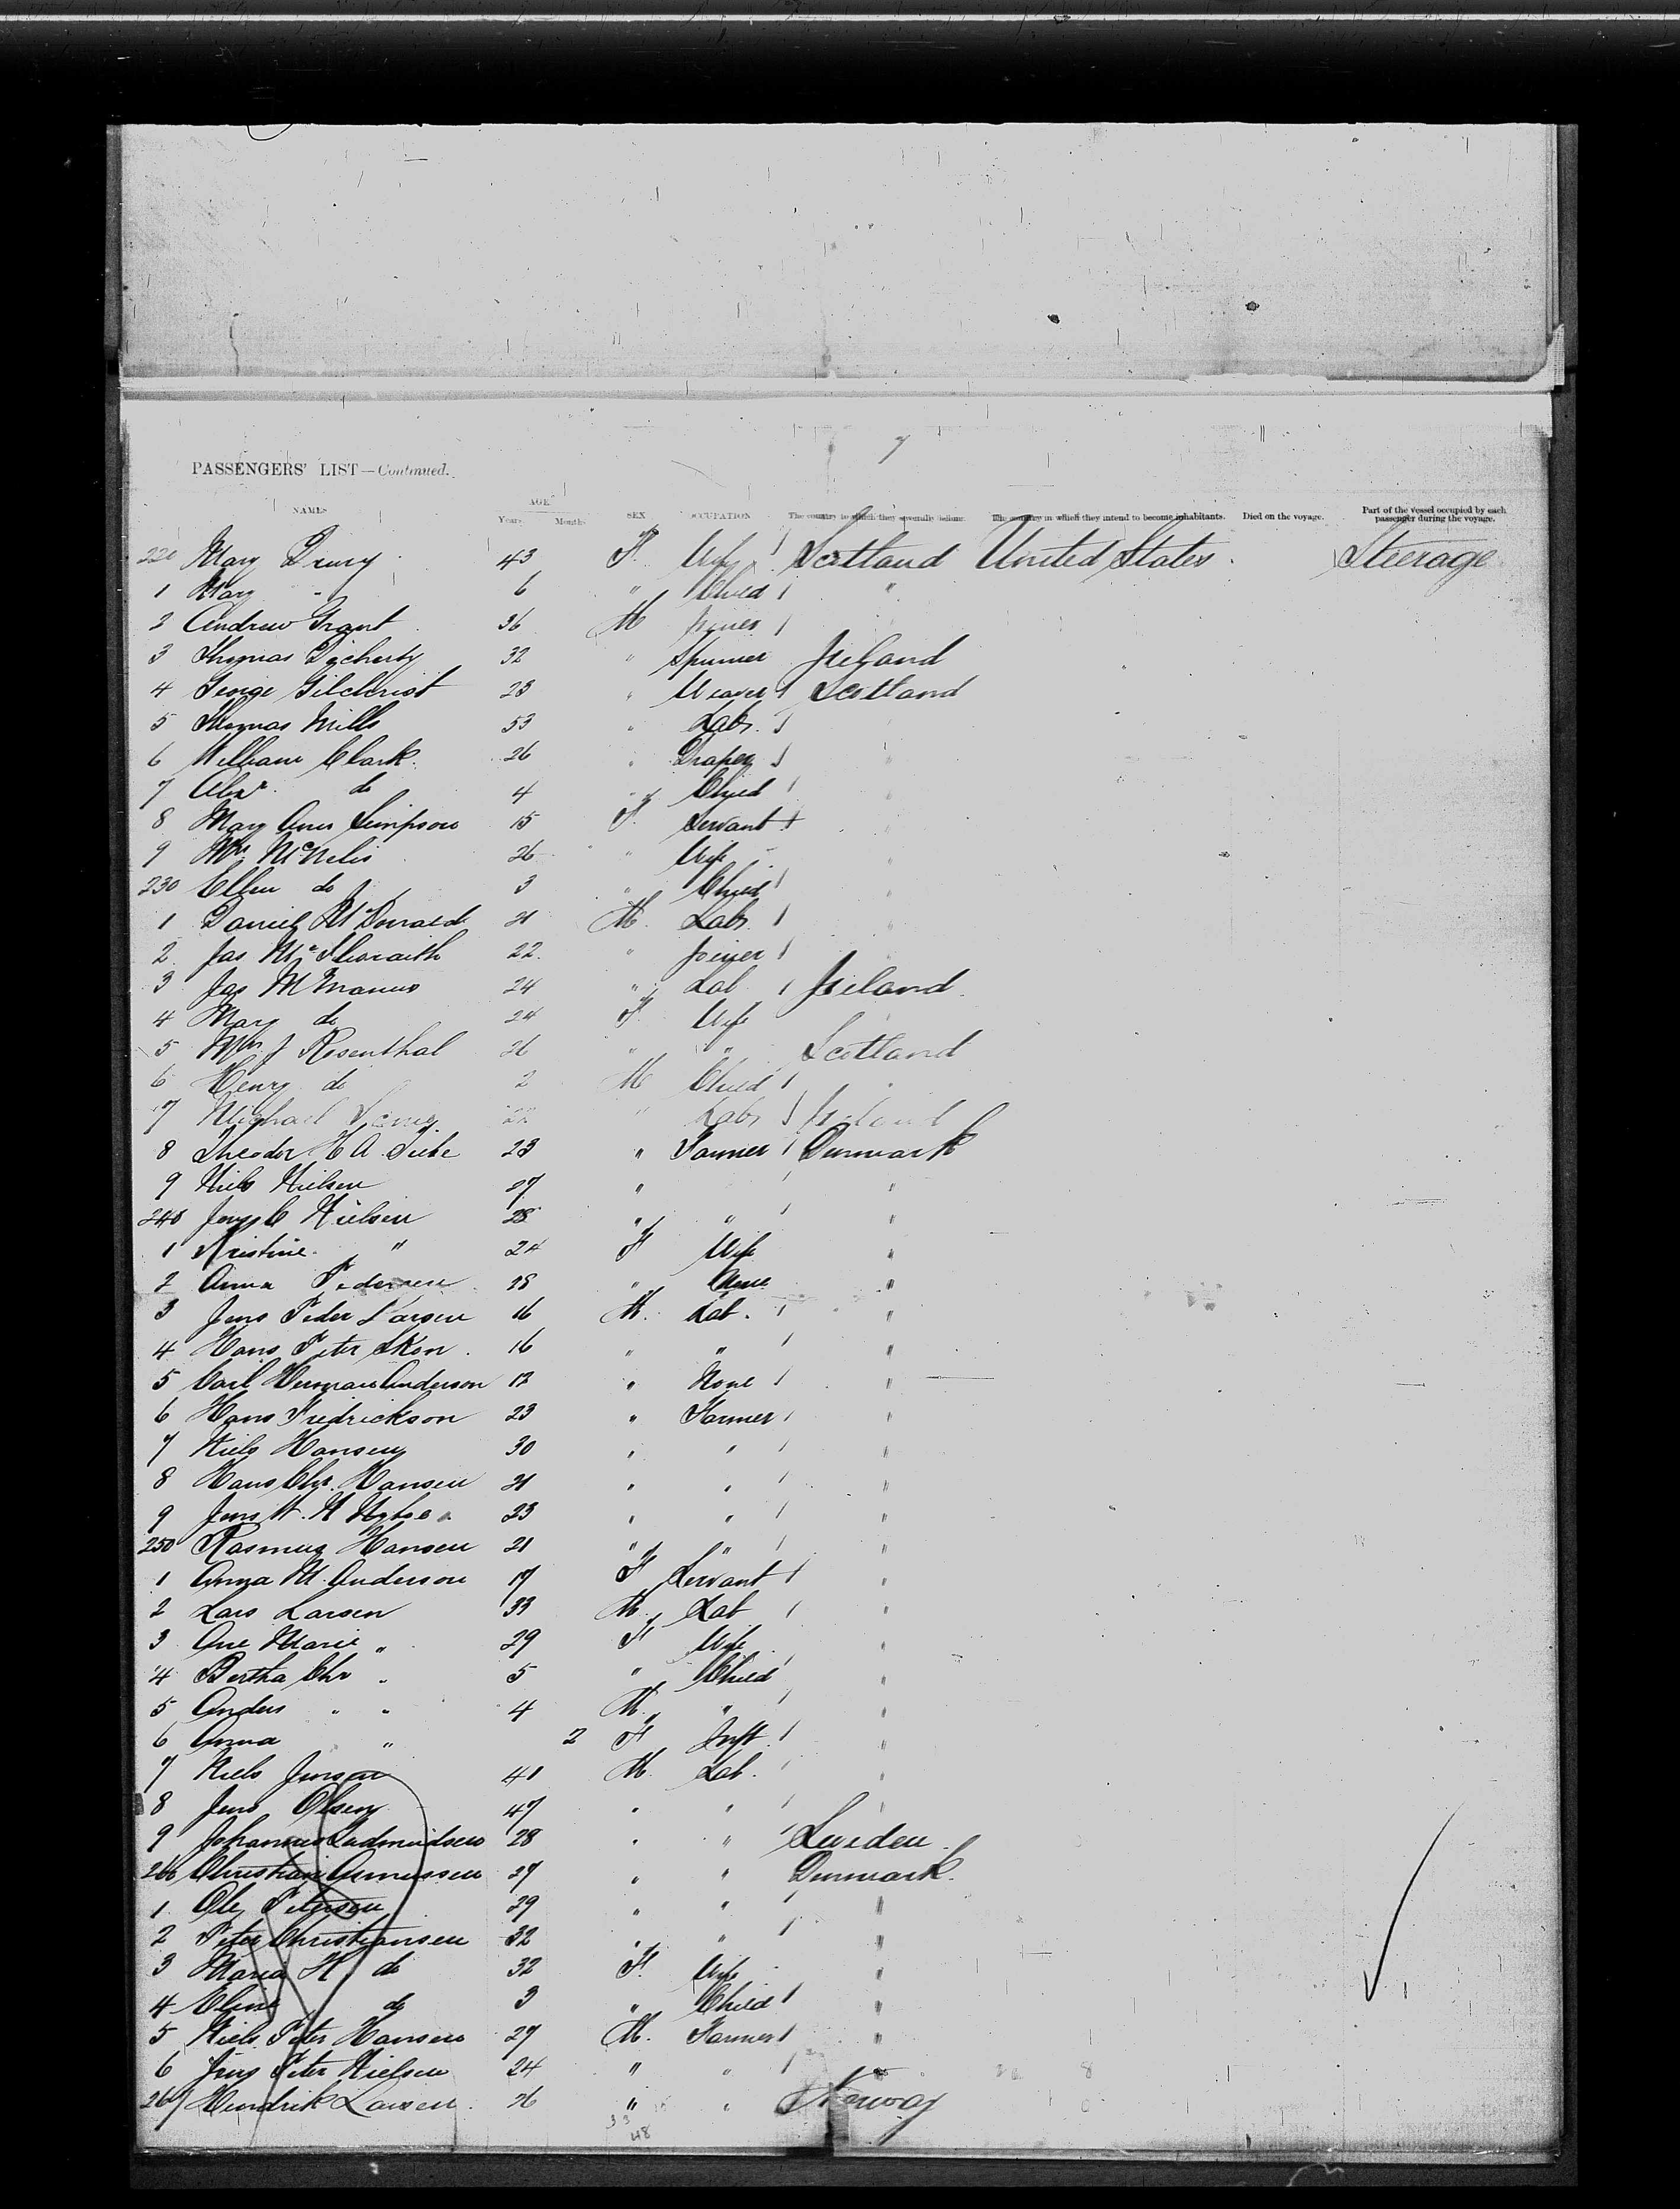 7
PASSENGERS' LIST—Continued.
NAMES AGE Years. Months. SEX OCCUPATION The country to which they severally belong. The country in which they intend to become inhabitants. Died on the voyage. Part of the vessel occupied by each passenger during the voyage.
220 Mary Drury 43 F. Wife Scotland United States. Steerage
1 Mary " 6 " Child "
2 Andrew Grant 36 M Joiner
3 Thomas Docherty 32 " Spinner Ireland
4 George Gilchrist 23 " Weaver Scotland
5 Thomas Mills 53 " Labr.
6 William Clark 26 " Draper
7 Alexr. do 4 " Child
8 Mary Ann Simpson 15 F. Servant
9 Mrs McNelis 26 " Wife
230 Ellen do 3 " Child
1 Daniel McDonald 21 M. Labr.
2 Jas McIlwraith 22 " Joiner
3 Jas McManus 24 " Lab Ireland
4 Mary do 24 F. Wife
5 Mrs J Rosenthal 26 " " Scotland
6 Henry do 2 M Child
7 Michael " Labr Ireland
8 Theodor H A 23 " Farmer Denmark
9 Niels Nielsen 27 " "
240 Nielsen 28 " " "
1 Kristine " 24 F Wife "
2 Anna Pedersen 28 " None "
3 Jens Peder Larsen 16 M. Lab. "
4 Hans Peter Skon 16 " " "
5 Carl Herman Anderson 12 " None "
6 Hans Fredrickson 23 " Farmer "
7 Niels Hansen 30 " " "
8 Hans Chr. Hansen 21 " " "
9 Jens 23 " " "
250 Rasmus Hansen 21 " " "
1 Anna M. Anderson 17 F Servant "
2 Lars Larsen 33 M. Lab "
3 Ane Marie " 29 F Wife "
4 Bertha Chr " 5 " Child "
5 Anders " " 4 M. " "
6 Anna " 2 F Inft. "
7 Niels Jensen 41 M. Lab. "
8 Jens Olsen 47 " " "
9 Johannes 28 " " Sweden.
260 Christian 27 " " Denmark.
1 Ole Peterson 29 " " "
2 Peter Christiansen 32 " " "
3 Maria H. do 32 F. Wife "
4 do 3 " Child "
5 Niels Peter Hansen 27 M. Farmer "
6 Jens Peter Nielsen 24 " " "
267 Hendrik Larsen 26 " " Norway
48